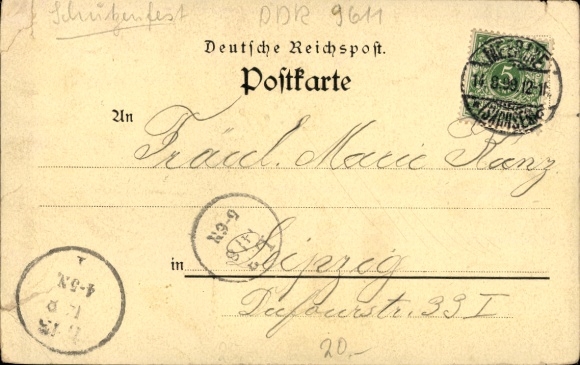 Schützenfest DDR 9611
Deutsche Reichspost.
Postkarte
5
14 8 99 12-1
(SACHSEN)
An
Fräul. Marie Kunz
5-6N
in Leipzig
4-5N.
Dufourstr. 33 I
20.-